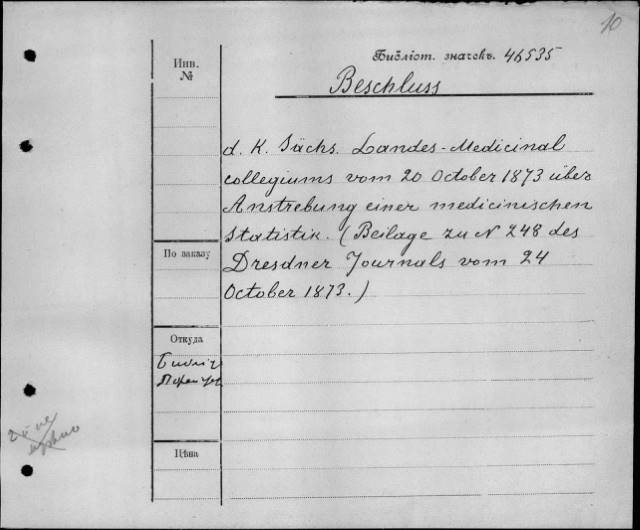 10
Инв.
№
Библіот. значекъ. 46535
Beschluss
d. K. Sächs. Landes-Medicinal
collegiums vom 20 October 1873 über
Anstrebung einer medicinischen
Statistik. (Beilage zu N 248 des
Dresdner Journals vom 24
October 1873.)
По заказу
Откуда
Цѣна